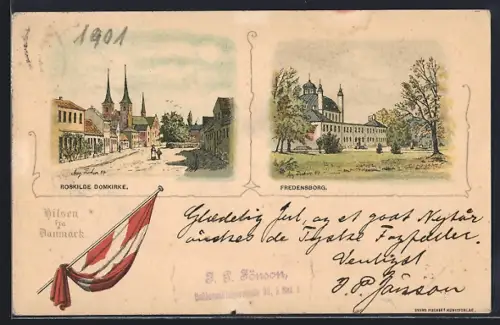 1901
ROSKILDE DOMKIRKE.
FREDENSBORG.
Hilsen
fra
Danmark
Glædelig Jul, og et godt Nytår
ønskes de Tyske Fagfæller.
Venligst
J. P. Jönson
J. P. Jönson,